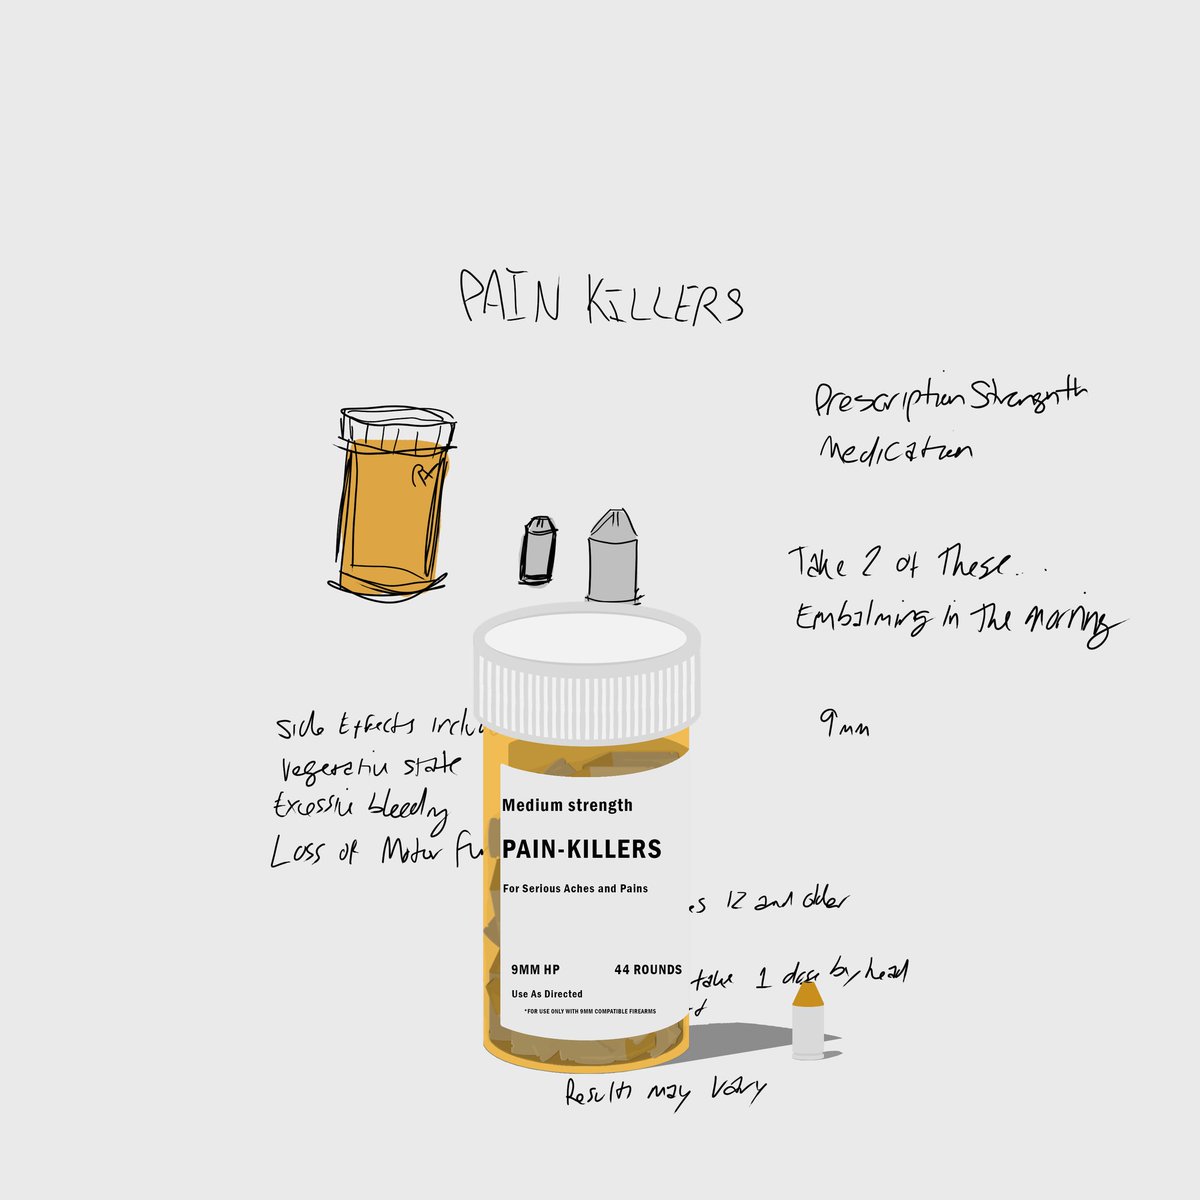 PAIN KILLERS
Prescription Strength
Medication
Rx
Take 2 of These...
Embalming in The Morning
9mm
Side Effects
Vegetative state
Excessive bleeding
Loss of Motor
Medium strength
PAIN-KILLERS
For Serious Aches and Pains
12 and older
9MM HP 44 ROUNDS
take 1 dose by head
Use As Directed
*FOR USE ONLY WITH 9MM COMPATIBLE FIREARMS
Results may vary